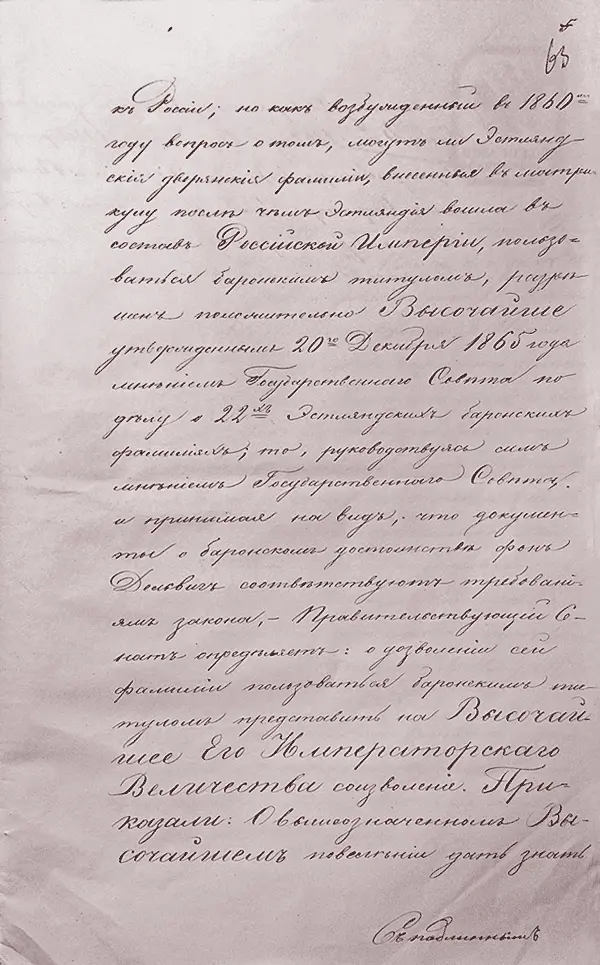 63
къ Россіи; но какъ возбужденный въ 1860мъ
году вопросъ о томъ, могутъ ли Эстлянд
скія дворянскія фамиліи, внесенныя въ матри
кулу послѣ чѣмъ Эстляндія вошла въ
составъ Россійской Имперіи, пользо-
ваться баронскимъ титуломъ, разрѣ
шенъ положительно Высочайше
утвержденнымъ 20го Декабря 1865 года
мнѣніемъ Государственнаго Совѣта по
дѣлу о 22хъ Эстляндскихъ баронскихъ
фамиліяхъ; то, руководствуясь симъ
мнѣніемъ Государственнаго Совѣта,
и принимая на видъ, что докумен-
ты о баронскомъ достоинствѣ фонъ
Дельвигъ соотвѣтствуютъ требовані-
ямъ закона, – Правительствующій Се-
натъ опредѣляетъ: о дозволеніи сей
фамиліи пользоваться баронскимъ ти-
туломъ представить на Высочай-
шее Его Императорскаго
Величества соизволеніе. При-
казали: О вышеозначенномъ Вы-
сочайшемъ повелѣніи дать знать
Съ подлиннымъ